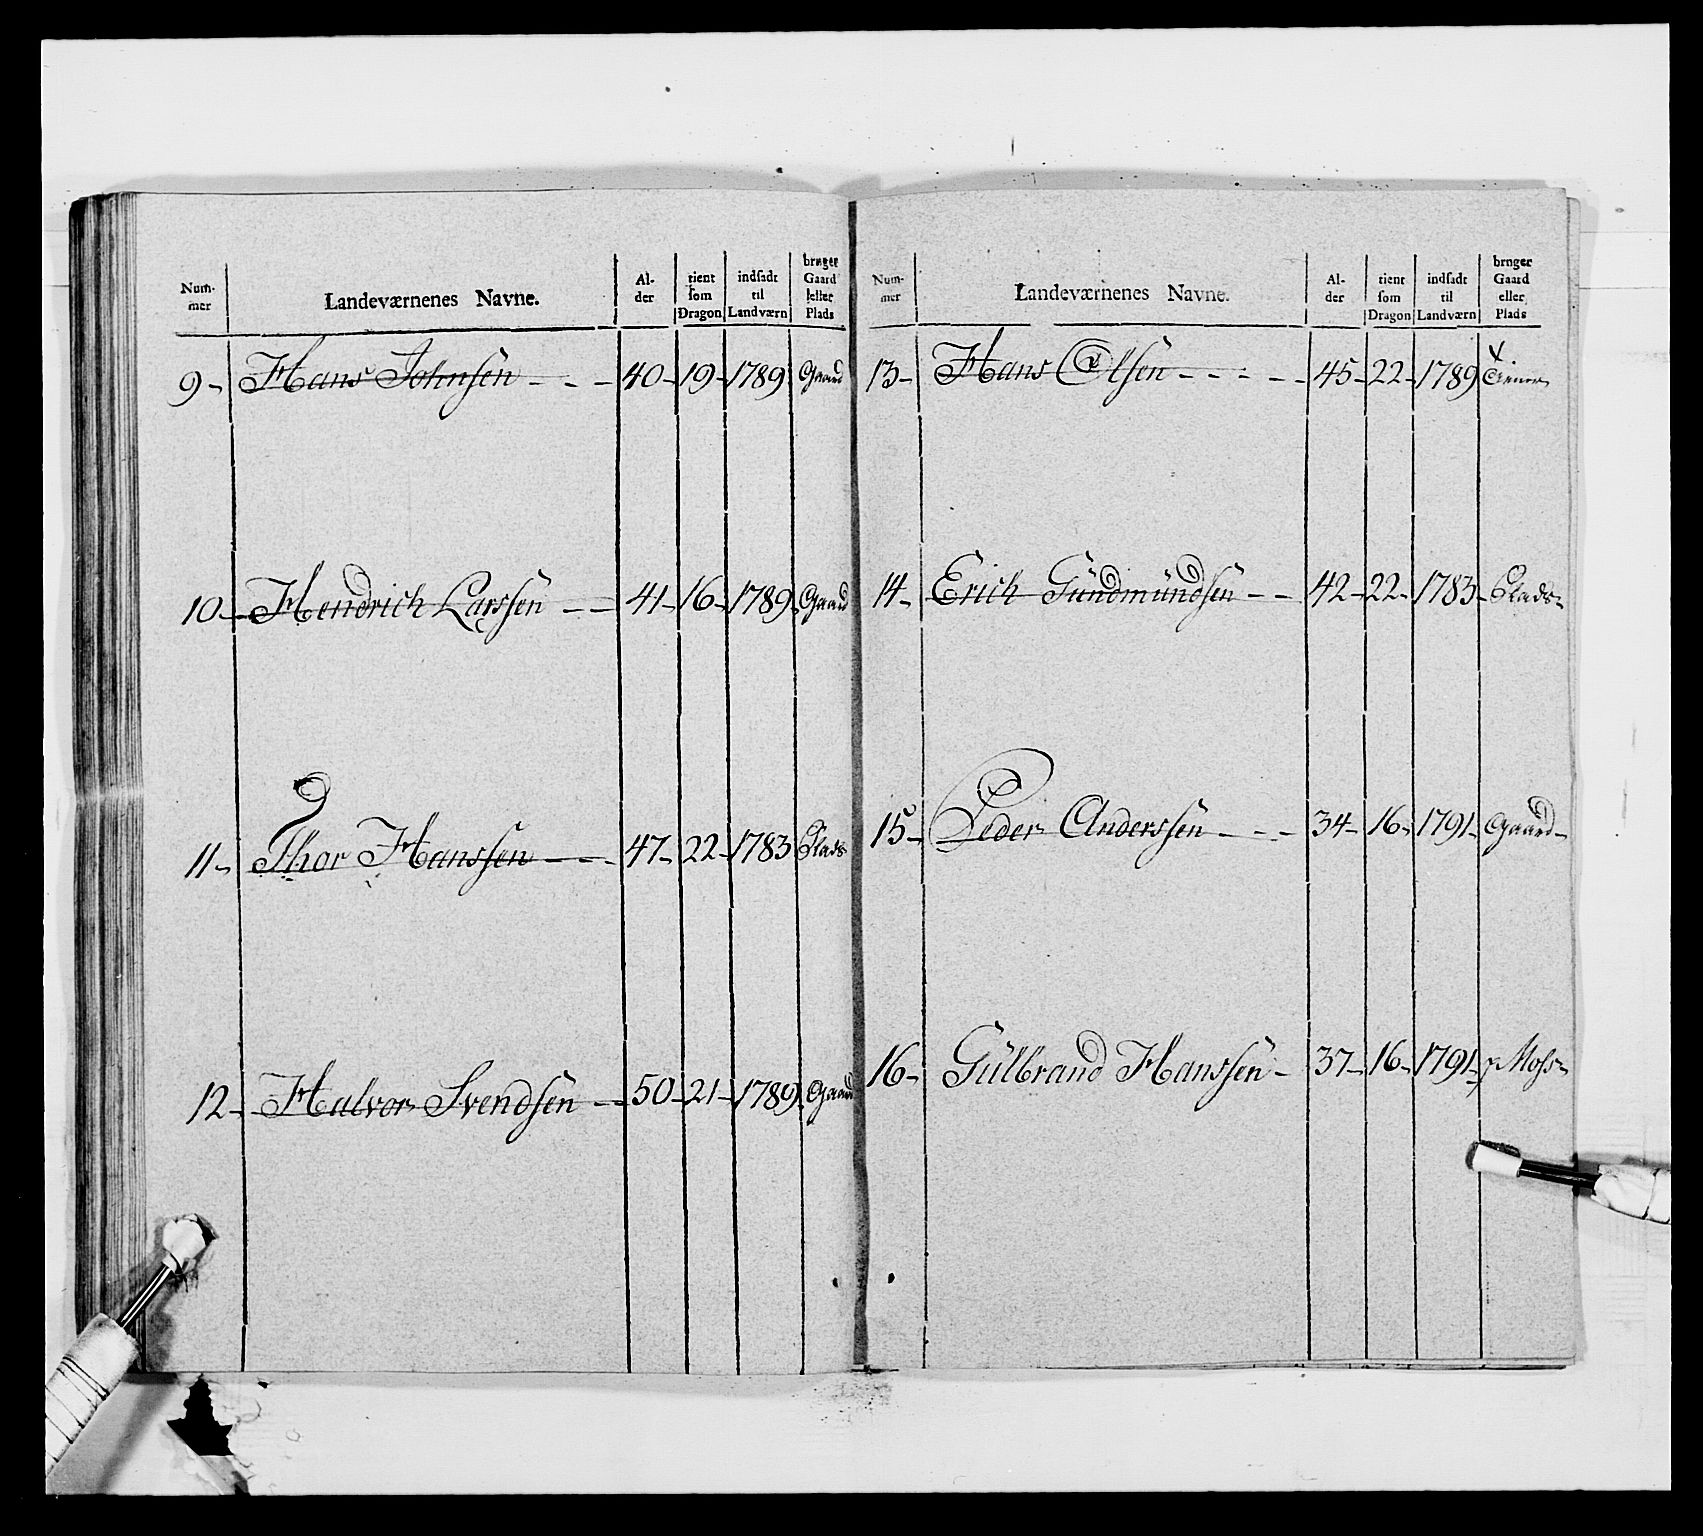 Num-
mer
Landeværnenes Navne.
Al-
der
tient
som
Dragon
indsadt
til
Landværn
bruger
Gaard
eller
Plads
9- Hans Johnsen - - - 40- 19- 1789 Gaard
10- Hendrich Larssen - - 41- 16- 1789- Gaard
11- Thor Hanssen - - - 47- 22- 1783 Plads
12- Halvor Svendsen - - 50- 21- 1789- Gaard
Num-
mer
Landeværnenes Navne.
Al-
der
tient
som
Dragon
indsadt
til
Landværn
bruger
Gaard
eller
Plads
13- Hans Olsen - - - - - 45- 22- 1789
14- Erich Gündmündsen - - 42- 22- 1783- Plads-
15- Peder Anderssen - - - 34- 16- 1791- Gaard-
16- Gülbrand Hanssen - 37- 16- 1791- Moss-